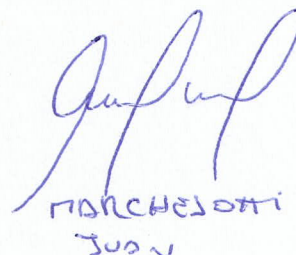 MARCHESOTTI
JUAN